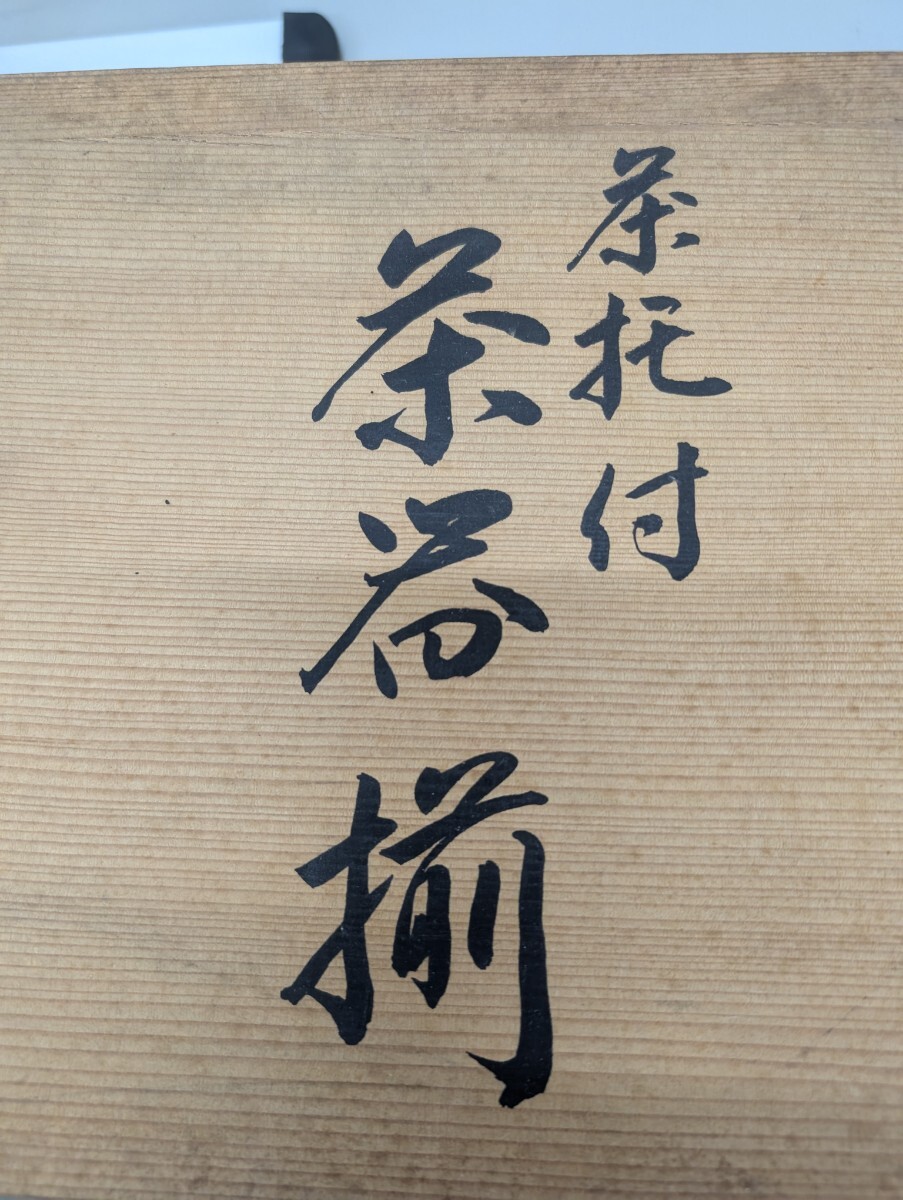 茶托付
茶器揃